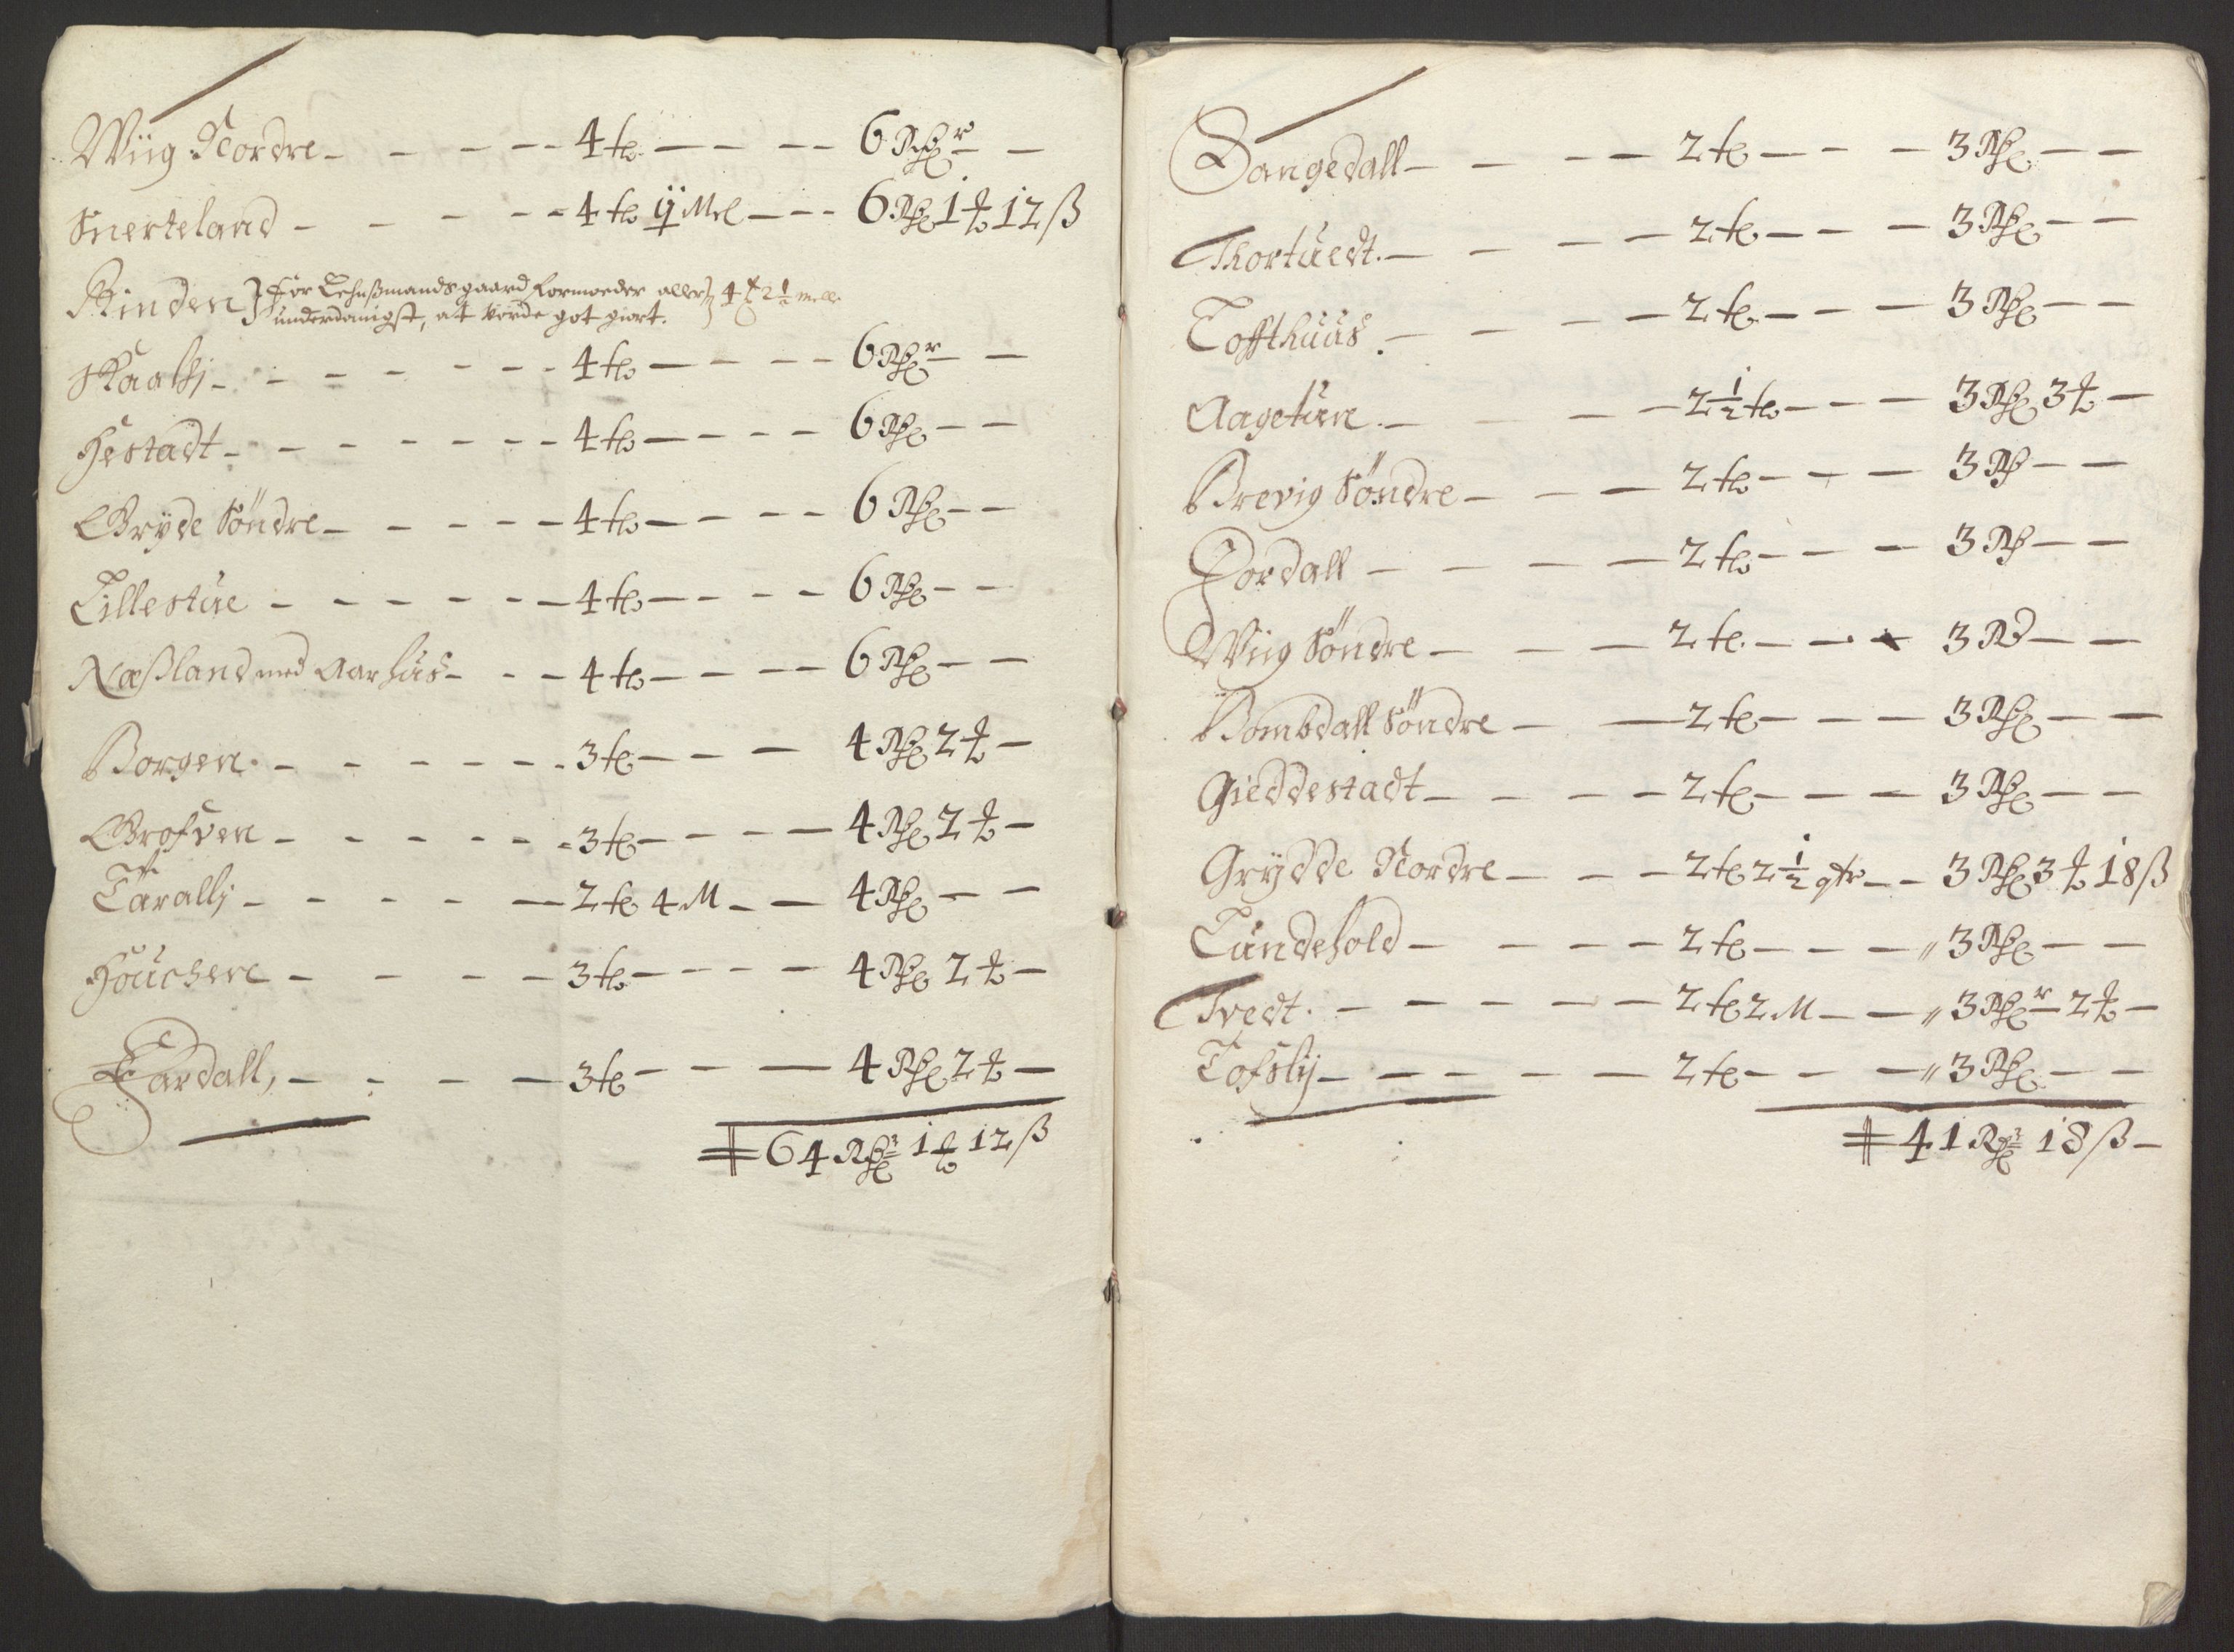 Wiig Nordre - - - - - 4 tr - - - - 6 Rdr - -
Snerteland - - - - - 4 tr ÿ Mel - - - 6 Rd 1 t 12 ß
Rinden } For Lehnßmands gaard formoeder aller} 4 t 2 1/2 melle
underdanigst, at vorde got giort.
Kaasj - - - - - - - 4 tr - - - - 6 Rdr - -
Hestadt - - - - - - - 4 tr - - - - 6 Rd - -
Gryde Söndre - - - - - 4 tr - - - - 6 Rd - -
Lillestue - - - - - - 4 tr - - - - 6 Rd - -
Næßland med Aarhus - - - 4 tr - - - - 6 Rd - -
Borgen - - - - - - 3 tr - - - 4 Rd 2 t -
Grofven - - - - - - 3 tr - - - - 4 Rd 2 t -
Taralsj - - - - - 2 tr 4 M - - 4 Rd - -
Houchere - - - - 3 tr - - - - 4 Rd 2 t -
Eardall, - - - - 3 tr - - - 4 Rd 2 t -
64 Rdr 1 t 12 ß
Dangedall - - - - 2 tr - - - 3 Rd - -
Thortuedt - - - - 2 tr - - - 3 Rd - -
Toffthuus - - - - 2 tr - - - 3 Rd - -
Aagetun - - - 2 1/2 tr - - - 3 Rd 3 t -
Brevig Söndre - - - 2 tr - - - 3 Rd - -
Dordall - - - - 2 tr - - - 3 Rd - -
Wiig Söndre - - - 2 tr - - - 3 Rd - -
Bombdall Söndre - - 2 tr - - - 3 Rd - -
Gieddestadt - - - - 2 tr - - - 3 Rd - -
Grydde Nordre - - - 2 tr 2 1/2 qtr - - 3 Rd 3 t 18 ß
Lundehold - - - - 2 tr - - - " 3 Rd - -
Tvedt - - - - - 2 tr 2 M - - " 3 Rdr 2 t -
Tofslij - - - - - 2 tr - - - " 3 Rd - -
41 Rdr 18 ß -